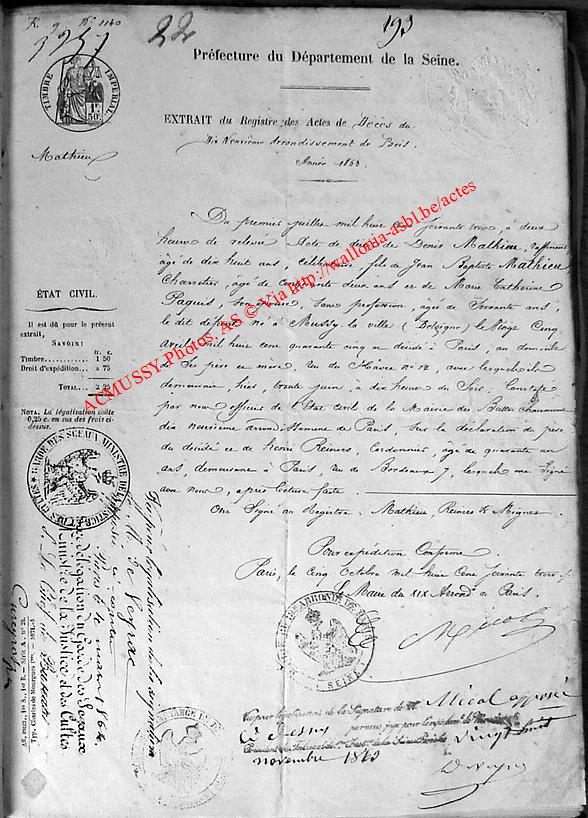 R. 9. No 1140
3757
22
193
Préfecture du Département de la Seine.
TIMBRE IMPÉRIAL
1F. 50c.
EXTRAIT du Registre des Actes de Décès du
Dix Neuvième Arrondissement de Paris
Année 1863.
Mathieu
Du premier juillet mil huit cent soixante trois, à deux
heures de relevée Acte de décès de Denis Mathieu,
âgé de dix huit ans, célibataire, fils de Jean Baptiste Mathieu
Charretier, âgé de cinquante deux ans et de Marie Catherine
Paquis, son épouse, sans profession, âgée de soixante ans,
le dit défunt né à Mussy la ville (Belgique) le
Avril mil huit cent quarante cinq et décédé à Paris, au domicile
de ses père et mère, rue du Havre No 12, avec lesquels il
demeurait, hier, trente juin, à dix heures du soir. Constaté
par nous officier de l'Etat civil de la Mairie des Buttes chaumont
dix neuvième arrondissement de Paris, sur la déclaration du père
du décédé et de henri Reiners, Cordonnier, âgé de quarante un
ans, demeurant à Paris, rue de Bordeaux 7, lesquels ont signé
avec nous, après lecture faite.
Ont signé au Registre, Mathieu, Reiners & Mignes
Pour expédition Conforme
Paris, le cinq Octobre mil huit cent soixante trois.
Le Maire du XIXe Arrond. de Paris.
Micol
ÉTAT CIVIL.
Il est dû pour le présent
extrait,
SAVOIR:
fr. c.
Timbre 1 50
Droit d'expédition » 75
TOTAL 2 25
NOTA. La légalisation coûte
0,25 c. en sus des frais ci-
dessus.
GARDE DES SCEAUX MINISTRE DE LA JUSTICE & DES CULTES
Vu pour légalisation de la signature
de M. de Veyrac
Paris le mars 1864.
Par délégation du Garde des Sceaux
Ministre de la Justice et des Cultes
Le Chef de Bureau
Typ. Charles de Mourgues
SEINE
Vu pour légalisation de la Signature de M. Micol apposée
ci dessus
vingt huit
novembre 1863
ACMUSSY-Photos. AS © Via http://wallonia-asbl.be/actes